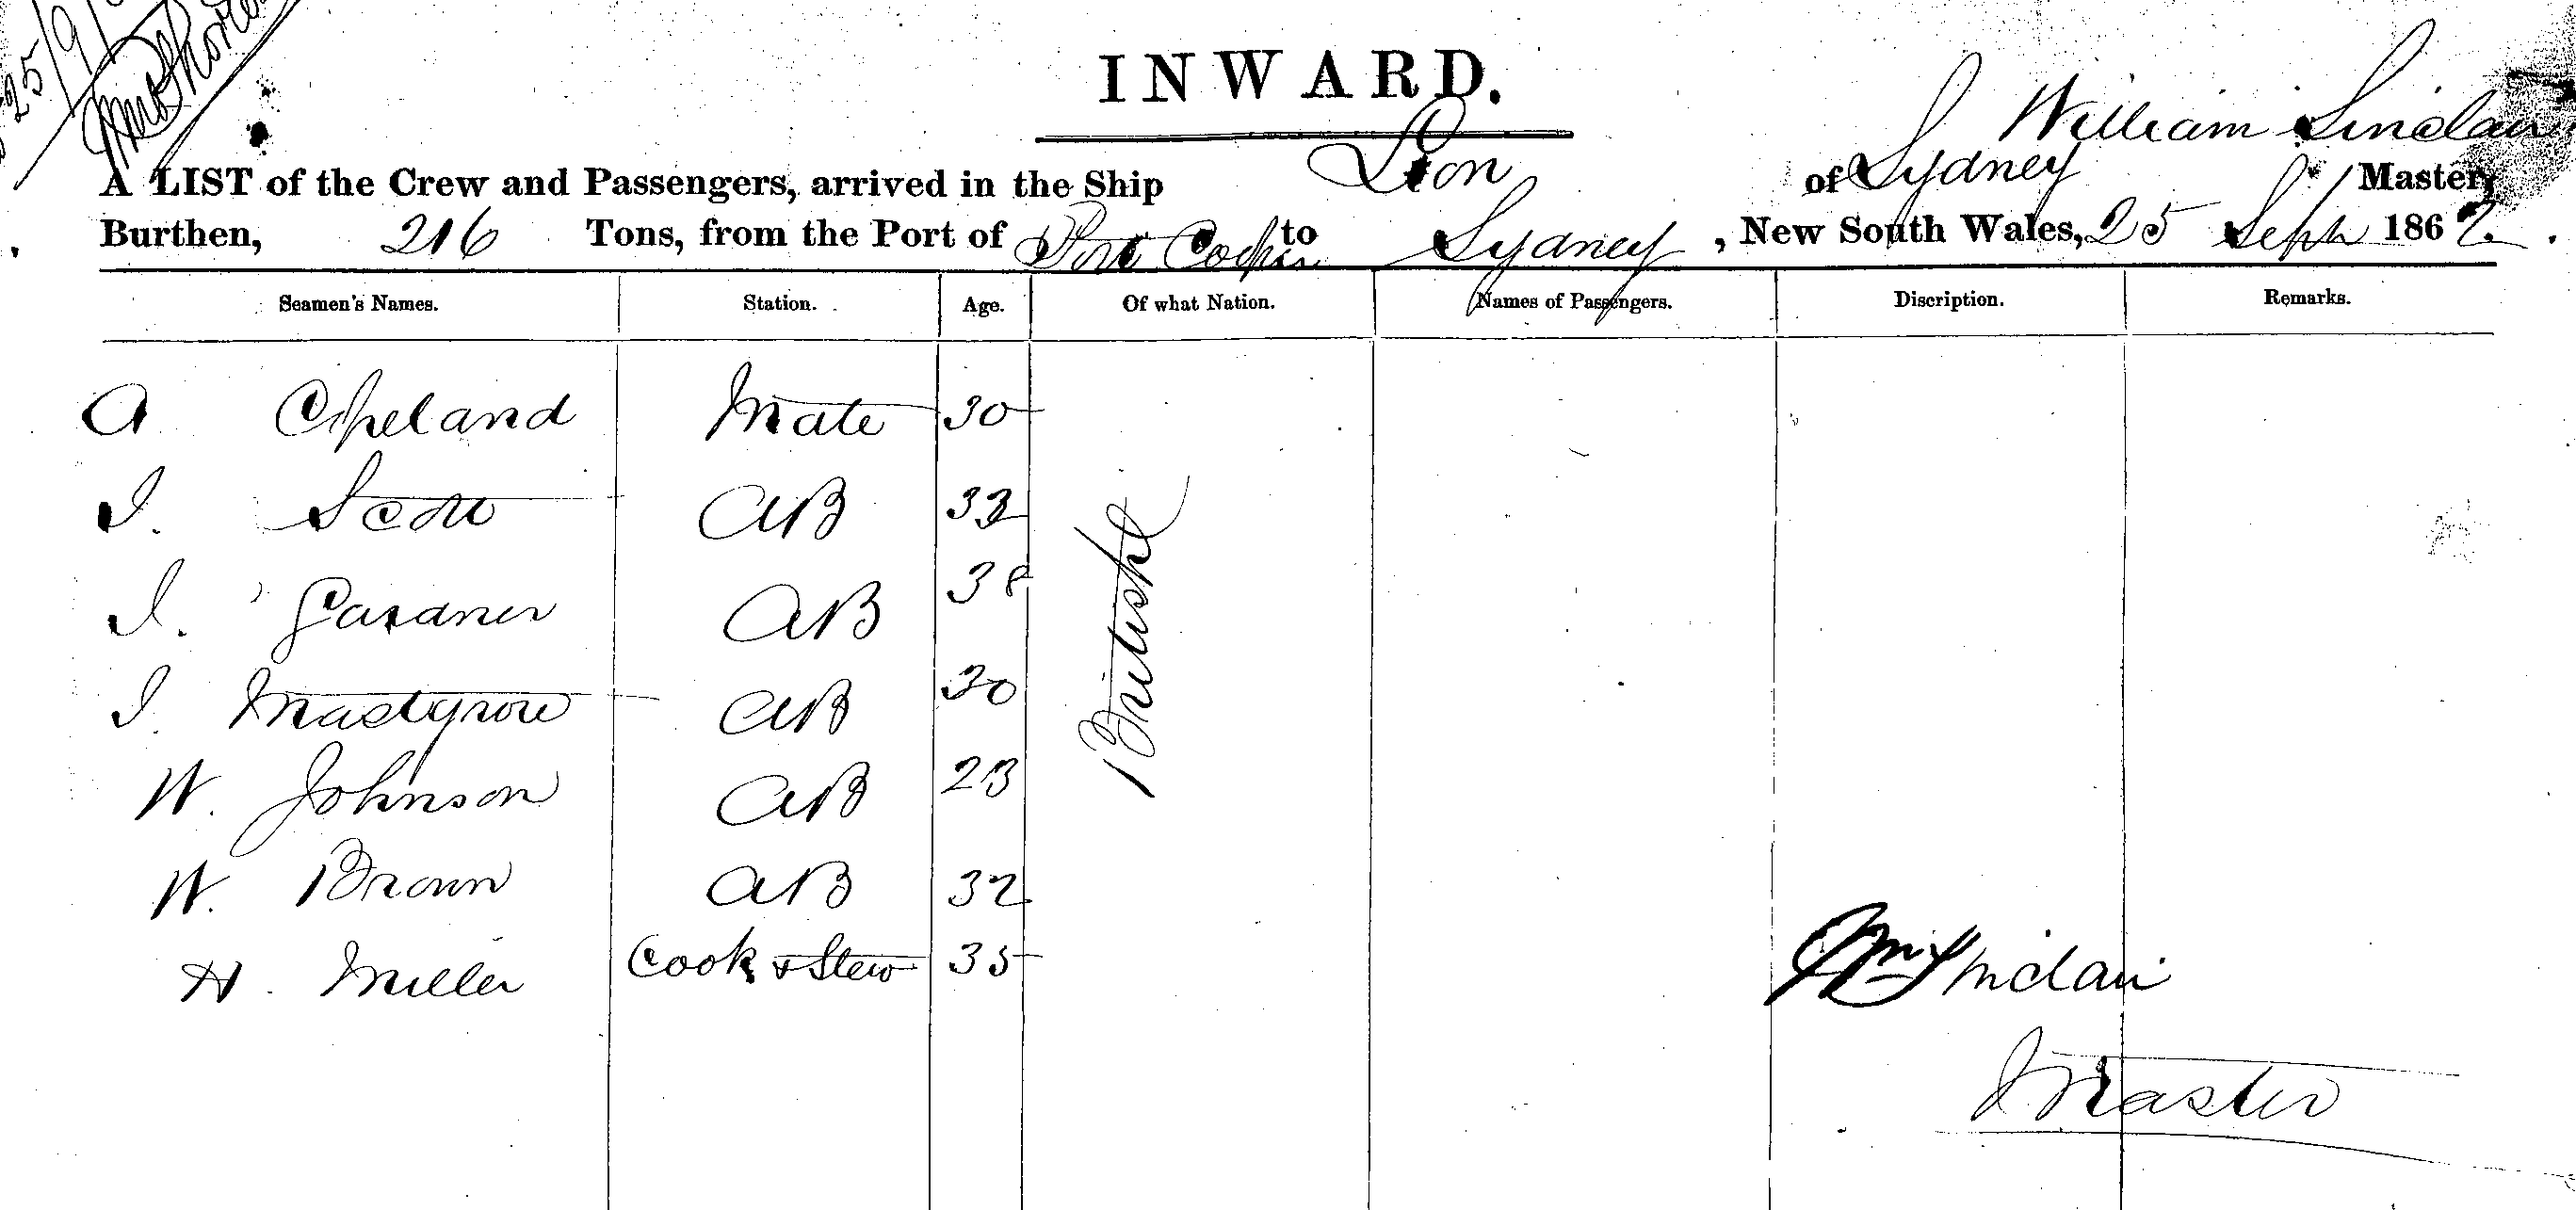 25/9/
INWARD.
William Sinclair
A LIST of the Crew and Passengers, arrived in the Ship Lion of Sydney Master,
Burthen, 216 Tons, from the Port of Port Cooper to Sydney, New South Wales, 25 Sept 1862.
Seamen's Names. Station. Age. Of what Nation. Names of Passengers. Discription. Remarks.
A Copeland Mate 30
J. Scott AB 33
J. Gardner AB 38
J. AB 30
W. Johnson AB 23
W. Brown AB 32
H. Miller Cook & Stew 35
British
Wm Sinclair
Master